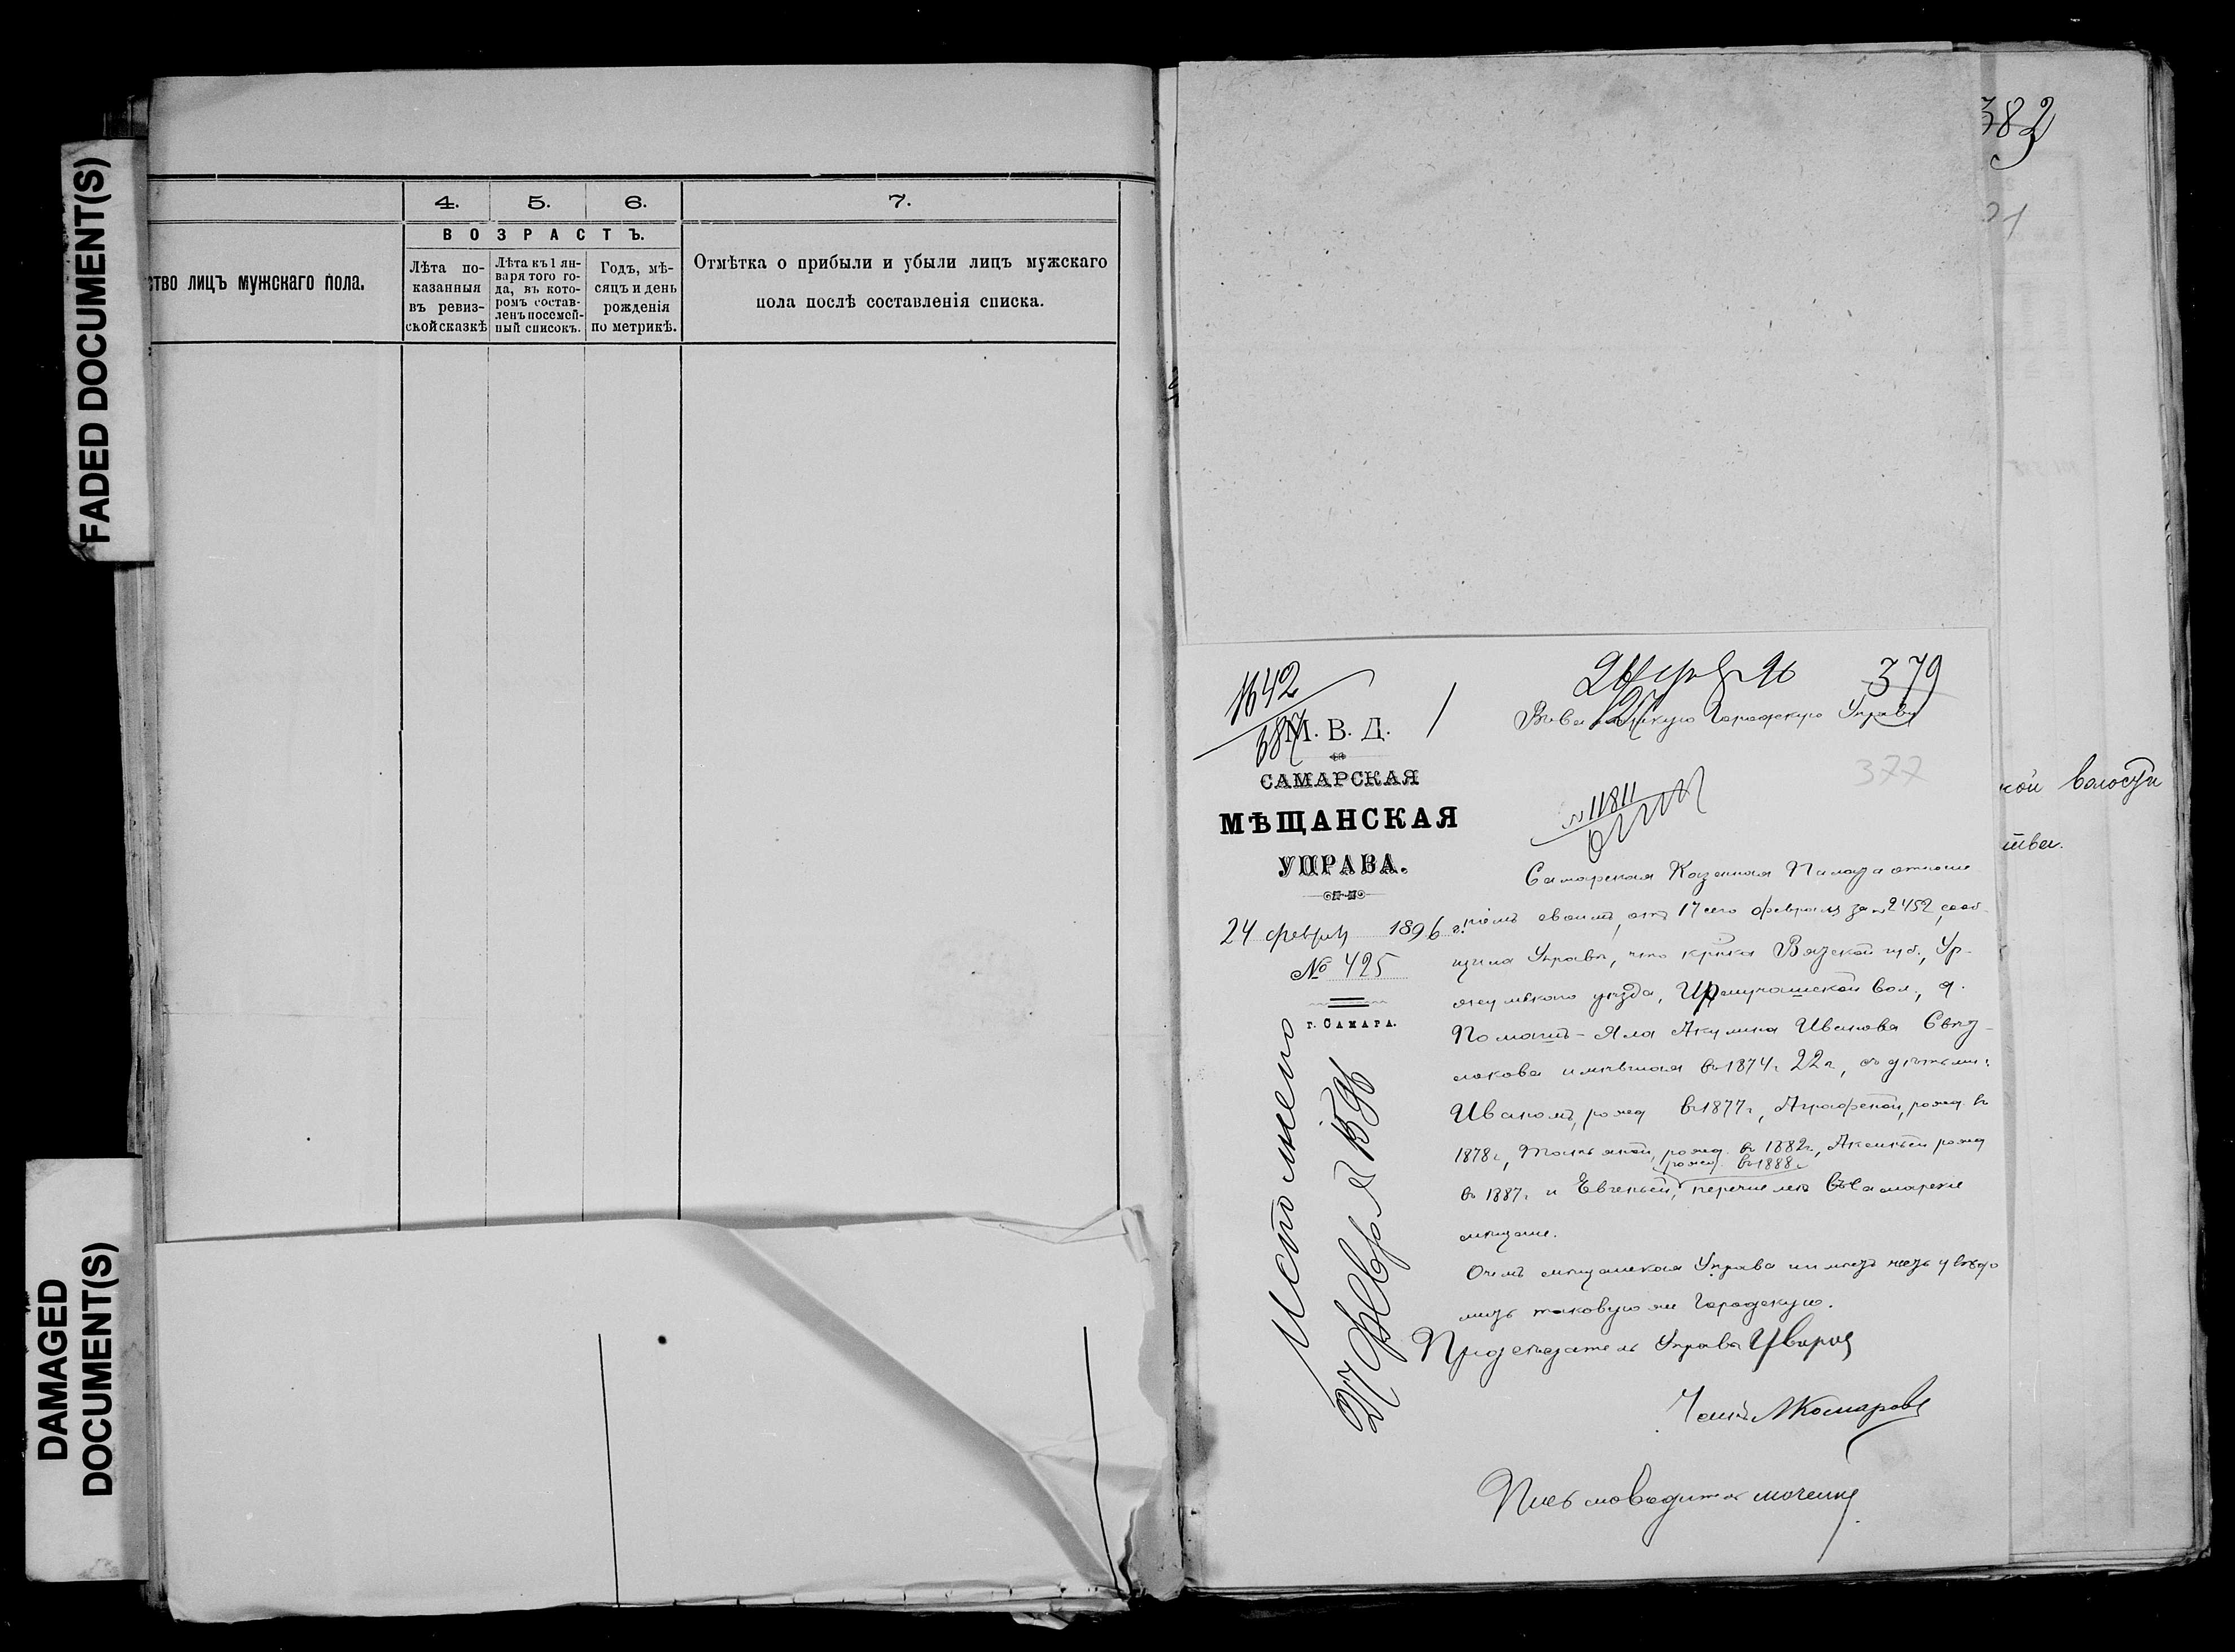 FADED DOCUMENT(S)
DAMAGED
DOCUMENT(S)
4. 5. 6. 7.
ВОЗРАСТЪ.
ство лицъ мужскаго пола.
Лѣта по-
казанныя
въ ревиз-
ской сказкѣ
Лѣта къ 1 ян-
варя того го-
да, въ кото-
ромъ состав-
ленъ посемей-
ный списокъ.
Годъ, мѣ-
сяцъ и день
рожденія
по метрикѣ.
Отмѣтка о прибыли и убыли лицъ мужскаго
пола послѣ составленія списка.
382
21
кой волости
ства.
1642
387
М. В. Д.
САМАРСКАЯ
МѢЩАНСКАЯ
УПРАВА.
24 февраля 1896 г.
№ 425
г. САМАРА.
Исполнено
27 февраля 1896
379
Городскую Управу
377
№ 11811
Самарская Казенная Палата отноше
ніемъ своимъ, отъ 17 сего февраля за № 2452, сооб-
щила Управѣ, что кр-ка Вятской губ., Ур-
жумскаго уѣзда, Ирмучашской вол., д.
Помашъ-Яла Акулина Иванова
имѣвшая въ 1874 г. 22 г., съ дѣтьми:
Иваномъ, рожд. въ 1877 г., Аграфеной, рожд. въ
1878 г., Татьяной, рожд. въ 1882 г., Аксиньей рожд
рожд. въ 1888 г.
въ 1887 г. и Евгеньей, перечислена въ самарскіе
мѣщане.
О чемъ мѣщанская Управа имѣетъ честь увѣдо
мить таковую же Городскую.
Предсѣдатель Управы
Членъ Комаровъ
Письмоводитель